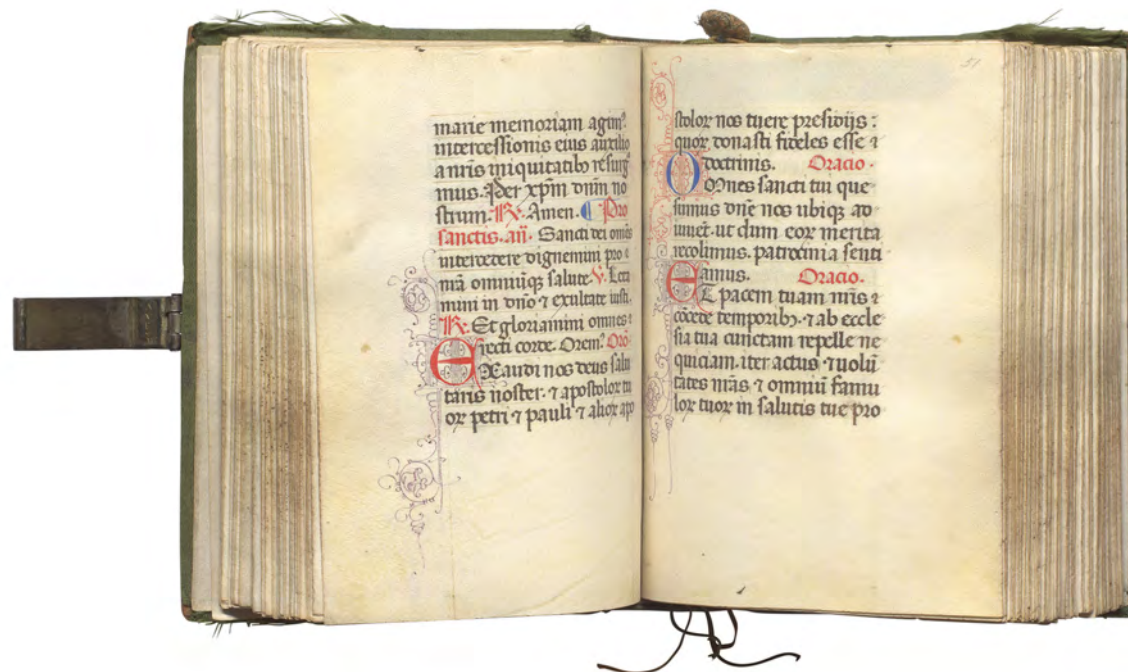 marie memoriam agimꝰ.
intercessionis eius auxilio
a nr̃is iniquitatibꝫ resurg̃
mus. Per xp̃m dñm no
strum. ℟. Amen. ¶ Pro
sanctis. añ. Sancti dei om̃s
intercedere dignemini pro
mã omniũqꝫ salute ℣. Leta
mini in dño ⁊ exultate iusti.
℟. Et gloriamini omnes
recti corde. Oremꝰ. Orõ
EXaudi nos deus salu
taris noster. ⁊ apostoloꝝ tu
oꝝ petri ⁊ pauli ⁊ alioꝝ apo
51
stoloꝝ nos tuere presidijs :
quoꝝ donasti fideles esse ⁊
doctrinis. Oracio.
OMnes sancti tui que
sumus dñe nos ubiqꝫ ad
iuuẽt. ut dum eoꝝ merita
recolimus. patrocinia senti
amus. Oracio.
ET pacem tuam nr̃is ⁊
cõcede temporibꝫ. ⁊ ab eccle
sia tua cunctam repelle ne
quiciam. iter actus ⁊ uolũ
tates nr̃as ⁊ omniũ famu
loꝝ tuoꝝ in salutis tue pro